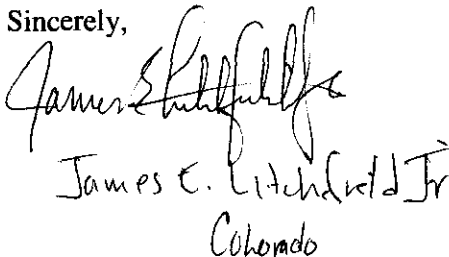 Sincerely,
James E Litchfield Jr
James E. Litchfield Jr
Colorado